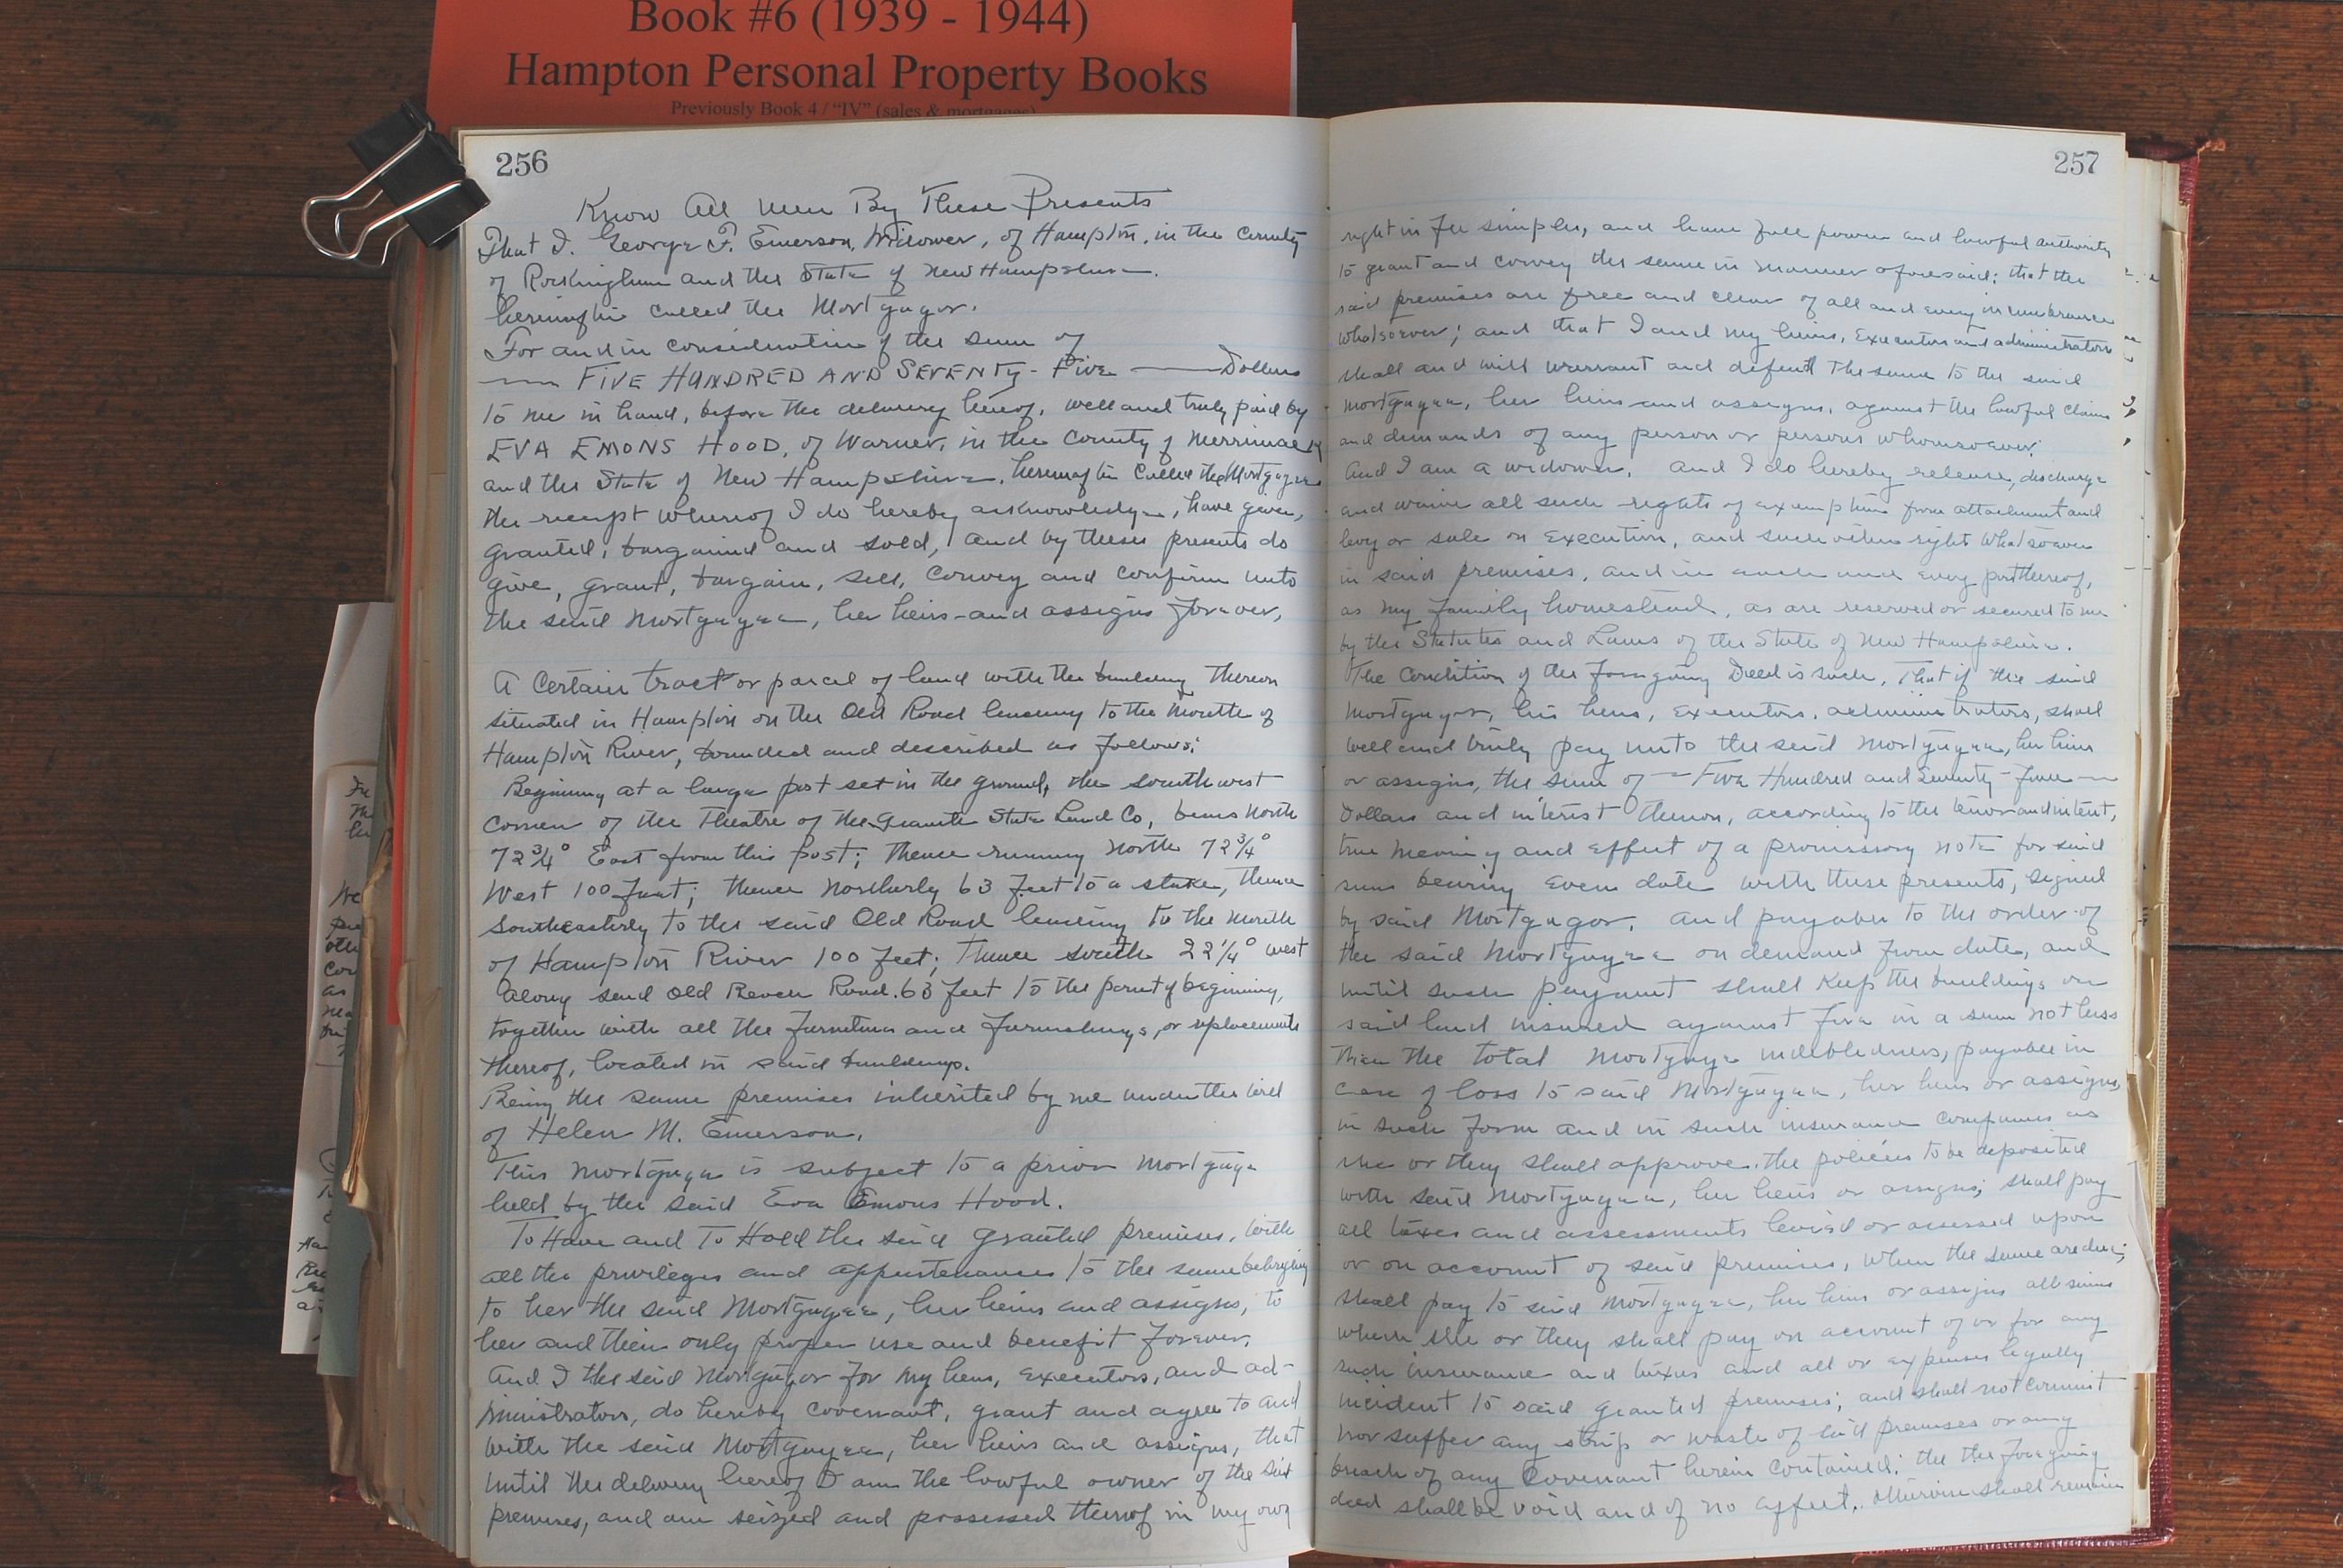 Book #6 (1939 - 1944)
Hampton Personal Property Books
Previously Book 4 / “IV” (sales & mortgages)
256
Know All Men By These Presents
That I, George F. Emerson, Widower, of Hampton, in the County
of Rockingham and the State of New Hampshire.
hereinafter called the Mortgagor.
For and in consideration of the sum of
FIVE HUNDRED AND SEVENTY-Five Dollars
to me in hand, before the delivery hereof, well and truly paid by
EVA EMONS HOOD, of Warner, in the County of Merrimack
and the State of New Hampshire, hereinafter called the Mortgagee
the receipt whereof I do hereby acknowledge, have given,
granted, bargained and sold, and by theses presents do
give, grant, bargain, sell, convey and confirm unto
the said Mortgagee, her heirs and assigns forever,
A Certain tract or parcel of land with the building thereon
situated in Hampton on the Old Road leading to the Mouth of
Hampton River, bounded and described as follows:
Beginning at a large post set in the ground, the southwest
corner of the Theatre of the Granite State Land Co, bears North
72 3/4° East from this post; thence running North 72 3/4°
West 100 feet; thence Northerly 63 feet to a stake, thence
Southeasterly to the said Old Road leading to the Mouth
of Hampton River 100 feet; thence south 22 1/4° west
along said Old Beach Road 63 feet to the point of beginning,
together with all the furniture and furnishings, or replacements
thereof, located in said buildings.
Being the same premises inherited by me under the will
of Helen M. Emerson.
This Mortgage is subject to a prior mortgage
held by the said Eva Emons Hood.
To Have and To Hold the said granted premises, with
all the privileges and appurtenances to the same belonging
to her the said Mortgagee, her heirs and assigns, to
her and their only proper use and benefit forever.
And I the said Mortgagor for my heirs, executors, and ad-
ministrators, do hereby covenant, grant and agree to and
with the said Mortgagee, her heirs and assigns, that
until the delivery hereof I am the lawful owner of the said
premises, and am seized and possessed thereof in my own
257
right in fee simple, and have full power and lawful authority
to grant and convey the same in manner aforesaid; that the
said premises are free and clear of all and every incumbrance
whatsoever; and that I and my heirs, executors and administrators
shall and will warrant and defend the same to the said
mortgagee, her heirs and assigns, against the lawful claims
and demands of any person or persons whomsoever.
And I am a widower, and I do hereby release, discharge
and waive all such rights of exemption from attachment and
levy or sale on execution, and such other right whatsoever
in said premises, and in each and every part thereof,
as my family homestead, as are reserved or secured to me
by the Statutes and Laws of the State of New Hampshire.
The Condition of the foregoing Deed is such, That if the said
Mortgagor, his heirs, executors, administrators, shall
well and truly pay unto the said Mortgagee, her heirs
or assigns, the sum of Five Hundred and Seventy-five
Dollars and interest thereon, according to the tenor and intent,
true meaning and effect of a promissory note for said
sum bearing even date with these presents, signed
by said Mortgagor, and payable to the order of
the said Mortgagee on demand from date, and
until such payment shall keep the buildings on
said land insured against fire in a sum not less
than the total Mortgage indebtedness, payable in
case of loss to said Mortgagee, her heirs or assigns,
in such form and in such insurance companies as
she or they shall approve, the policies to be deposited
with said Mortgagee, her heirs or assigns; shall pay
all taxes and assessments levied or assessed upon
or on account of said premises, when the same are due;
shall pay to said Mortgagee, her heirs or assigns all sums
which she or they shall pay on account of or for any
such insurance and taxes and all or expenses legally
incident to said granted premises; and shall not commit
nor suffer any strip or waste of said premises or any
breach of any Covenant herein contained; the the foregoing
deed shall be void and of no affect. Otherwise shall remain